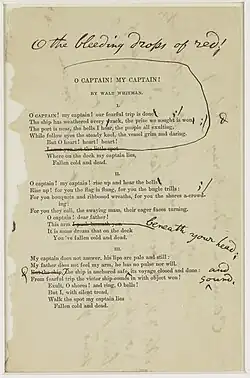 O the bleeding drops of red!
O CAPTAIN! MY CAPTAIN!
BY WALT WHITMAN.
I.
O CAPTAIN! my captain! our fearful trip is done
The ship has weathered every rack, the prize we sought is won
The port is near, the bells I hear, the people all exulting,
While follow eyes the steady keel, the vessel grim and daring.
But O heart! heart! heart!
Where on the deck my captain lies,
Fallen cold and dead.
II.
O captain! my captain! rise up and hear the bells
Rise up! for you the flag is flung, for you the bugle trills:
For you bouquets and ribboned wreaths, for you the shores a-crowd-
ing:
For you they call, the swaying mass, their eager faces turning.
O captain! dear father!
This arm
beneath your head;
It is some dream that on the deck
You've fallen cold and dead.
III.
My captain does not answer, his lips are pale and still:
My father does not feel my arm, he has no pulse nor will.
ship is anchored safe, its voyage closed and done:
and sound,
From fearful trip the victor ship comes in with object won!
Exult, O shores! and ring, O bells!
But I, with silent tread,
Walk the spot my captain lies
Fallen cold and dead.